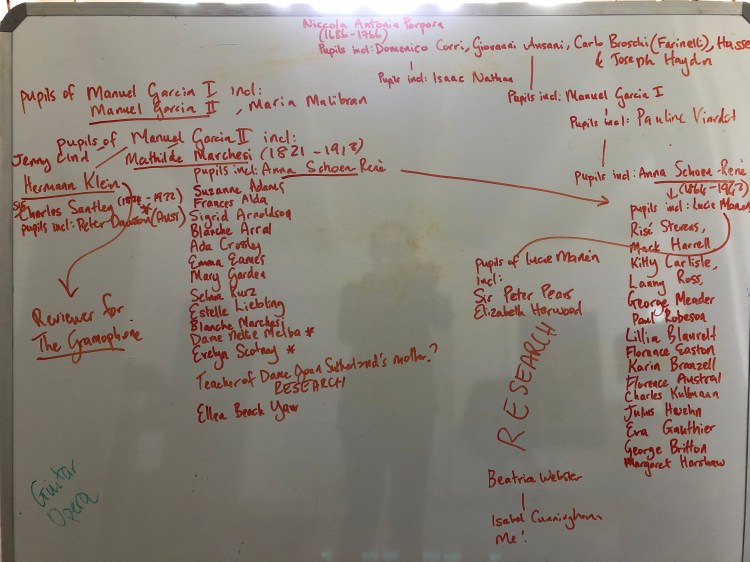 Niccola Antonia Porpora
(1686-1766)
Pupils incl: Domenico Corri, Giovanni Ansani, Carlo Broschi (Farinelli), Hasse
& Joseph Haydn
Pupils incl: Isaac Nathan
Pupils incl: Manuel Garcia I
Pupils incl: Pauline Viardot
Pupils incl: Anna Schoen-René
(1864-1942)
pupils incl: Lucie Manén
Risë Stevens,
Mack Harrell
Kitty Carlisle,
Lanny Ross,
George Meader
Paul Robeson
Lillia Blauvelt
Florence Easton
Karin Branzell
Florence Austral
Charles Kullmann
Julius Huehn
Eva Gauthier
George Britton
Margaret Harshaw
pupils of Manuel Garcia I incl:
Manuel Garcia II, Maria Malibran
pupils of Manuel Garcia II incl:
Jenny Lind
Mathilde Marchesi (1821-1913)
Hermann Klein
Sir Charles Santley (1834-1922)
pupils incl: Peter Dawson (Aust)
Reviewer for
The Gramophone
pupils incl: Anna Schoen René
Suzanne Adams
Frances Alda
Sigrid Arnoldson
Blanche Arral
Ada Crosley
Emma Eames
Mary Garden
Selma Kurz
Estelle Liebling
Blanche Marchesi
Dame Nellie Melba *
Evelyn Scotney *
Teacher of Dame Joan Sutherland's mother?
RESEARCH
Ellen Beach Yaw
pupils of Lucie Manén
incl:
Sir Peter Pears
Elizabeth Harwood
RESEARCH
Beatrice Webster
Isobel Cunningham
Me!
Guitar
Opera